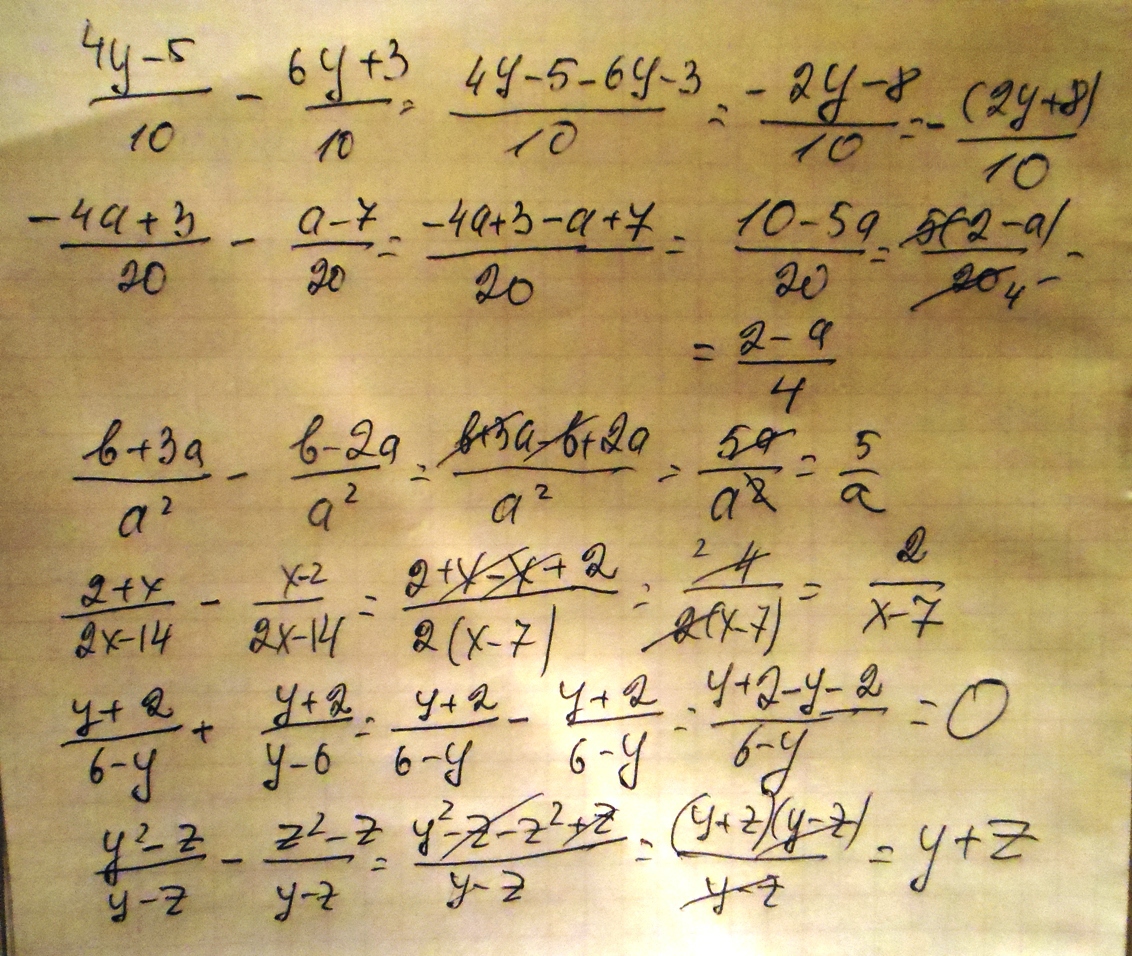 (4y-5)/10 - (6y+3)/10 = (4y-5-6y-3)/10 = (-2y-8)/10 = -(2y+8)/10
(-4a+3)/20 - (a-7)/20 = (-4a+3-a+7)/20 = (10-5a)/20 = 5(2-a)/20 4 =
= (2-a)/4
(b+3a)/a² - (b-2a)/a² = (b+3a-b+2a)/a² = 5a/a² = 5/a
(2+x)/(2x-14) - (x-2)/(2x-14) = (2+x-x+2)/(2(x-7)) = 2 4/(2(x-7)) = 2/(x-7)
(y+2)/(6-y) + (y+2)/(y-6) = (y+2)/(6-y) - (y+2)/(6-y) = (y+2-y-2)/(6-y) = 0
(y²-z)/(y-z) - (z²-z)/(y-z) = (y²-z-z²+z)/(y-z) = (y+z)(y-z)/(y-z) = y+z